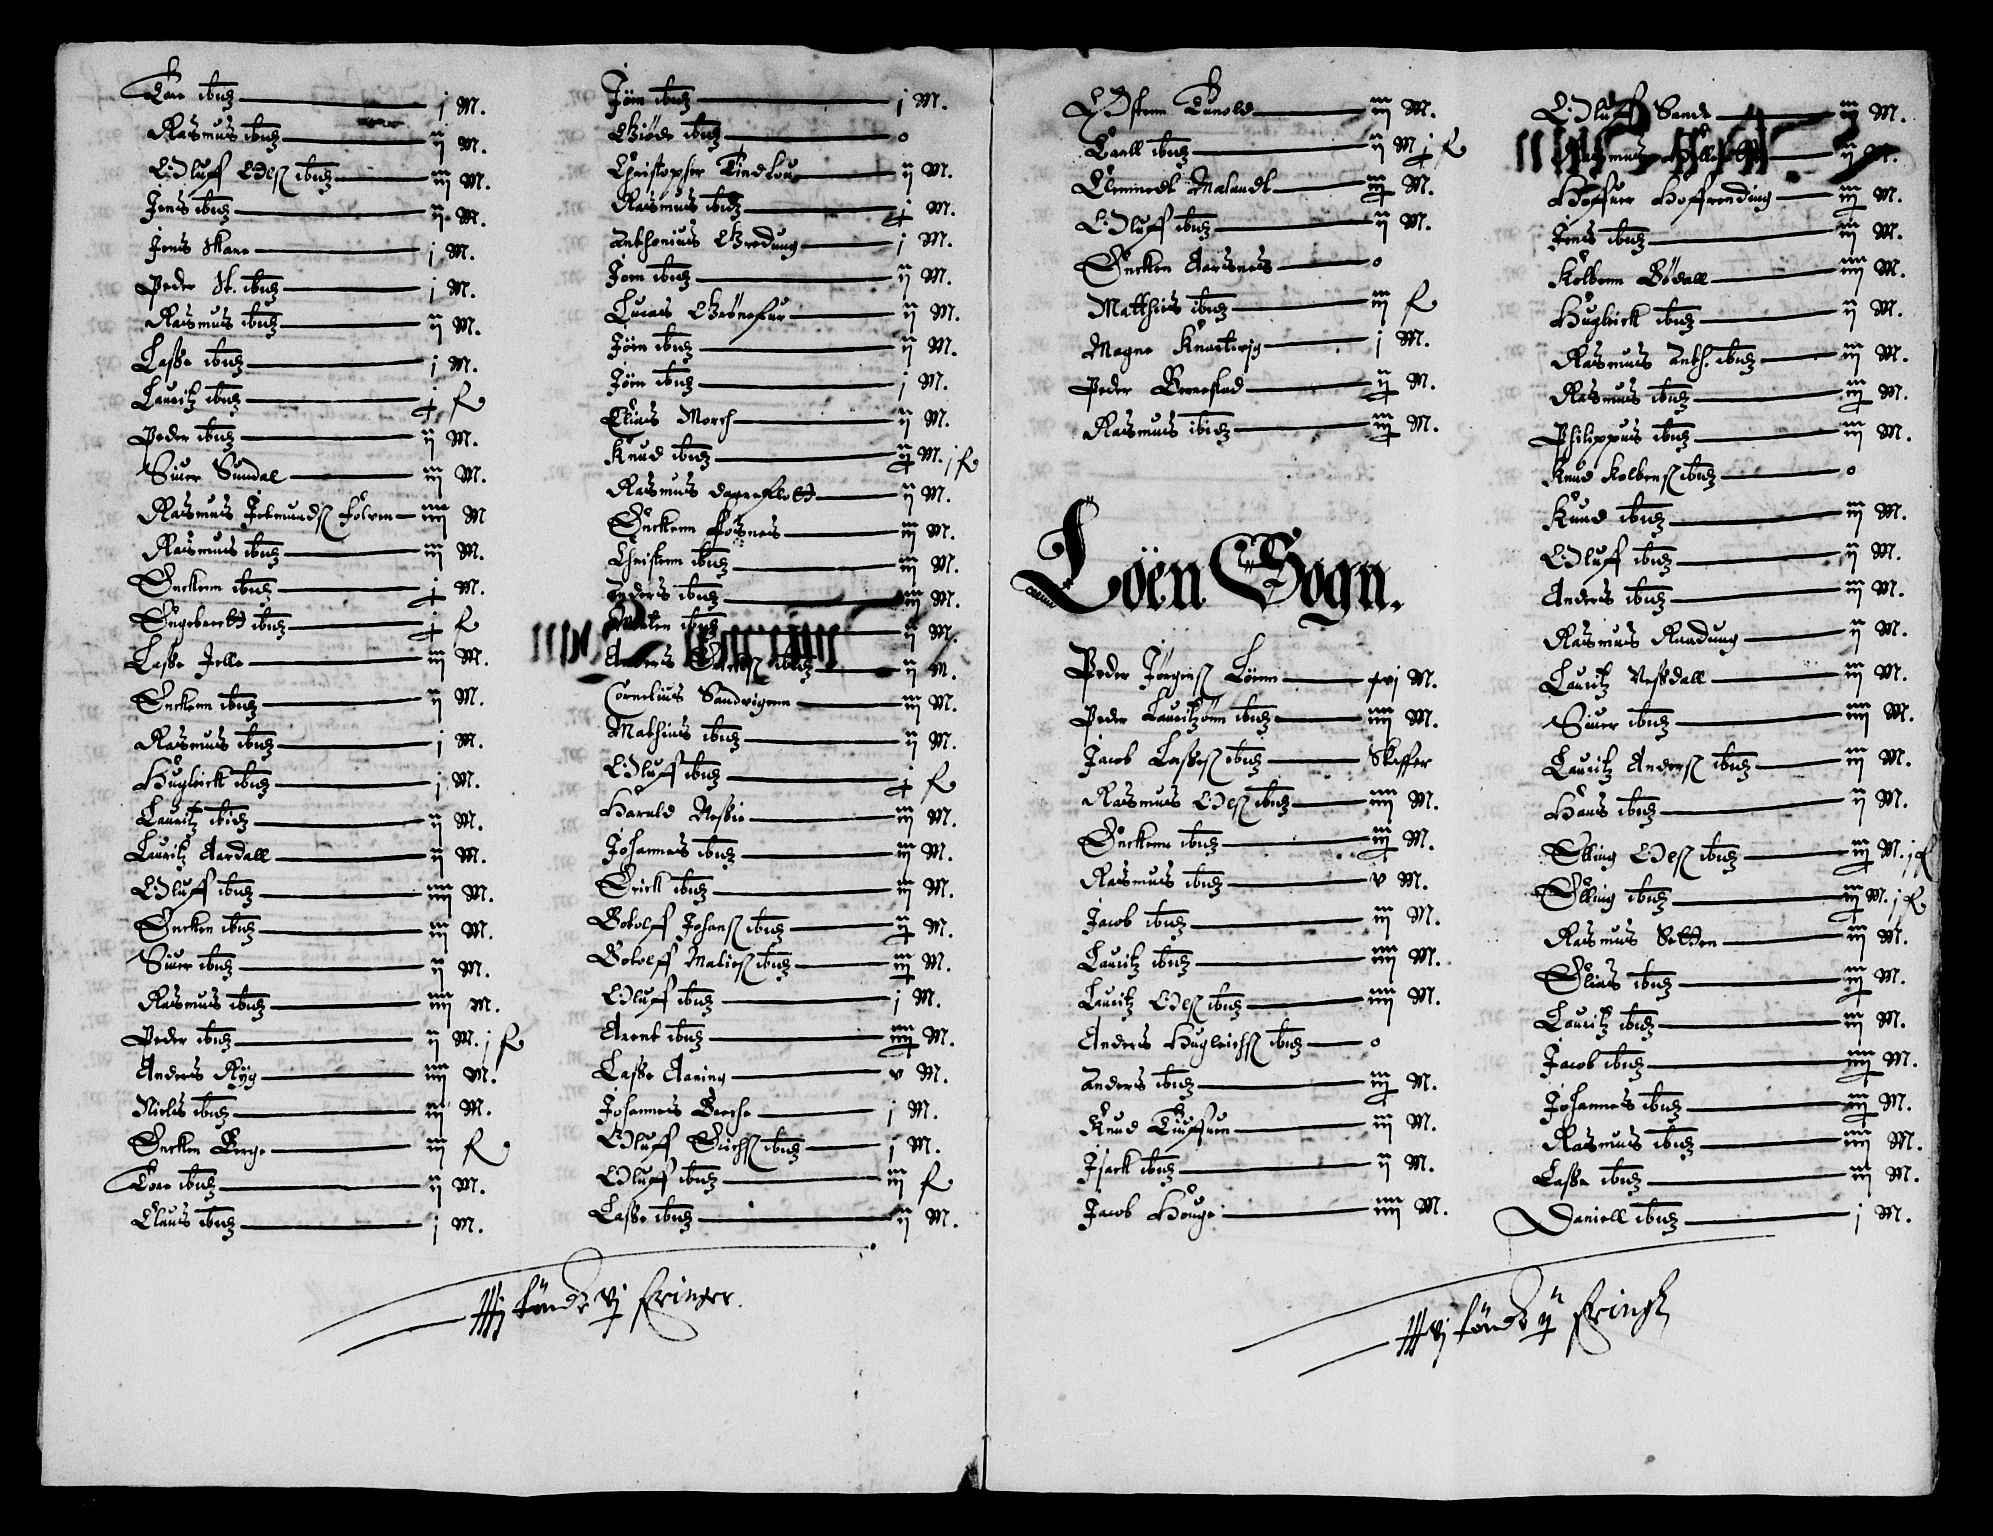 Tore ibid. j M.
Rasmus ibid. ij M.
Oluff Oels. ibid. iij M.
Jens ibid. ij M.
Jens Skare j M.
Peder St. ibid. j M.
Rasmus ibid. ij M.
Lasse ibid. j M.
Lauritz ibid. j f
Peder ibid. ij M.
Siuer Sundal iij M.
Rasmus iiij M
Rasmus ibid. iij M.
Enckenn ibid. j M.
Engebrett ibid. j f
Lasse Jelle iij M.
Enckenn ibid. ij M.
Rasmus ibid. j M.
Hugleick ibid. j M.
Lauritz ibid. ij M.
Lauritz Aardall ij M.
Oluff ibid. iiij M.
Encken ibid. iij M.
Siuer ibid. ij M.
Rasmus ibid. iiij M.
Peder ibid. ij M. j f
Anders Ryg iiij M.
Niels ibid. iij M.
Encken Berge iij f
Tore ibid. ij M.
Claus ibid. j M.
Jönn ibid. j M.
Giöde ibid. o
Christopher ij M.
Rasmus ibid. j M.
Anthonius Gredung j M.
Joen ibid. ij M.
Lucas ij M.
Jöen ibid. ij M.
Jöen ibid. j M.
Elias Morch ij M.
Knud ibid. ij M. j f
Rasmus ij M.
Enckenn Fosnes iij M.
Christenn ibid. iij M.
Anders ibid. iij M.
ibid. ij M.
Anders ibid. ij M.
Cornelius Sandvigenn iij M.
Mathias ibid. ij M.
Oluff ibid. j f
Harald Nessie iij M.
Johannes ibid. iij M.
Erick ibid. iij M.
Gotolff Johans. ibid. ij M.
Gotolff ibid. iij M.
Oluff ibid. j M.
Arent ibid. iiij M.
Lasse Aaning v M.
Johannes Berche j M.
Oluff Erichs. ibid. j M.
Oluff ibid. iij f
Lasse ibid. ij M.
tönde vj fringer.
Østenn Tunold iij M.
Torll ibid. ij M j f
Clemendt Malandt iij M.
Oluff ibid. ij M.
Encken Aarsnes o
Matthis ibid. iij f
Magne j M.
Peder ij M.
Rasmus ibid. iij M.
Löen Sogn.
Peder Jörgens. Löenn xvj M.
Peder Lauritzönn ibid. iiij M.
Jacob Lasses. ibid. Skaffer
Rasmus Oels. ibid. iiij M.
Enckenn ibid. iij M.
Rasmus ibid. v M.
Jacob ibid. iij M.
Lauritz ibid. iiij M.
Lauritz Oels. ibid. iiij M.
Anders Hugleichs. ibid. o
Anders ibid. iij M.
Knud Tiufsum iij M.
Isack ibid. ij M.
Jacob Houge iiij M.
Oluff Sande iij M.
Rasmus ij M.
Hoffuer Hoffrending iij M.
Jens ibid. iij M.
Kolbenn Bödall iiij M.
Hugleick ibid. ij M.
Rasmus Anth. ibid. iij M.
Rasmus ibid. iij M.
Philippus ibid. iij M.
Knud Kolbens. ibid. o
Knud ibid. iij M.
Oluff ibid. ij M.
Anders ibid. iij M.
Rasmus Raadung ij M.
Lauritz Nessdall iij M.
Siuer ibid. iiij M.
Lauritz Anders. ibid. iij M.
Hans ibid. ij M.
Elling Oels. ibid. iij M. j f
Elling ibid. iij M. j f
Rasmus Setten iij M.
Elias ibid. iij M.
Lauritz ibid. iij M.
Jacob ibid. iiij M.
Johannes ibid. iiij M.
Rasmus ibid. iiij M.
Lasse ibid. iij M.
Daniell ibid. j M.
tönde ij fring.